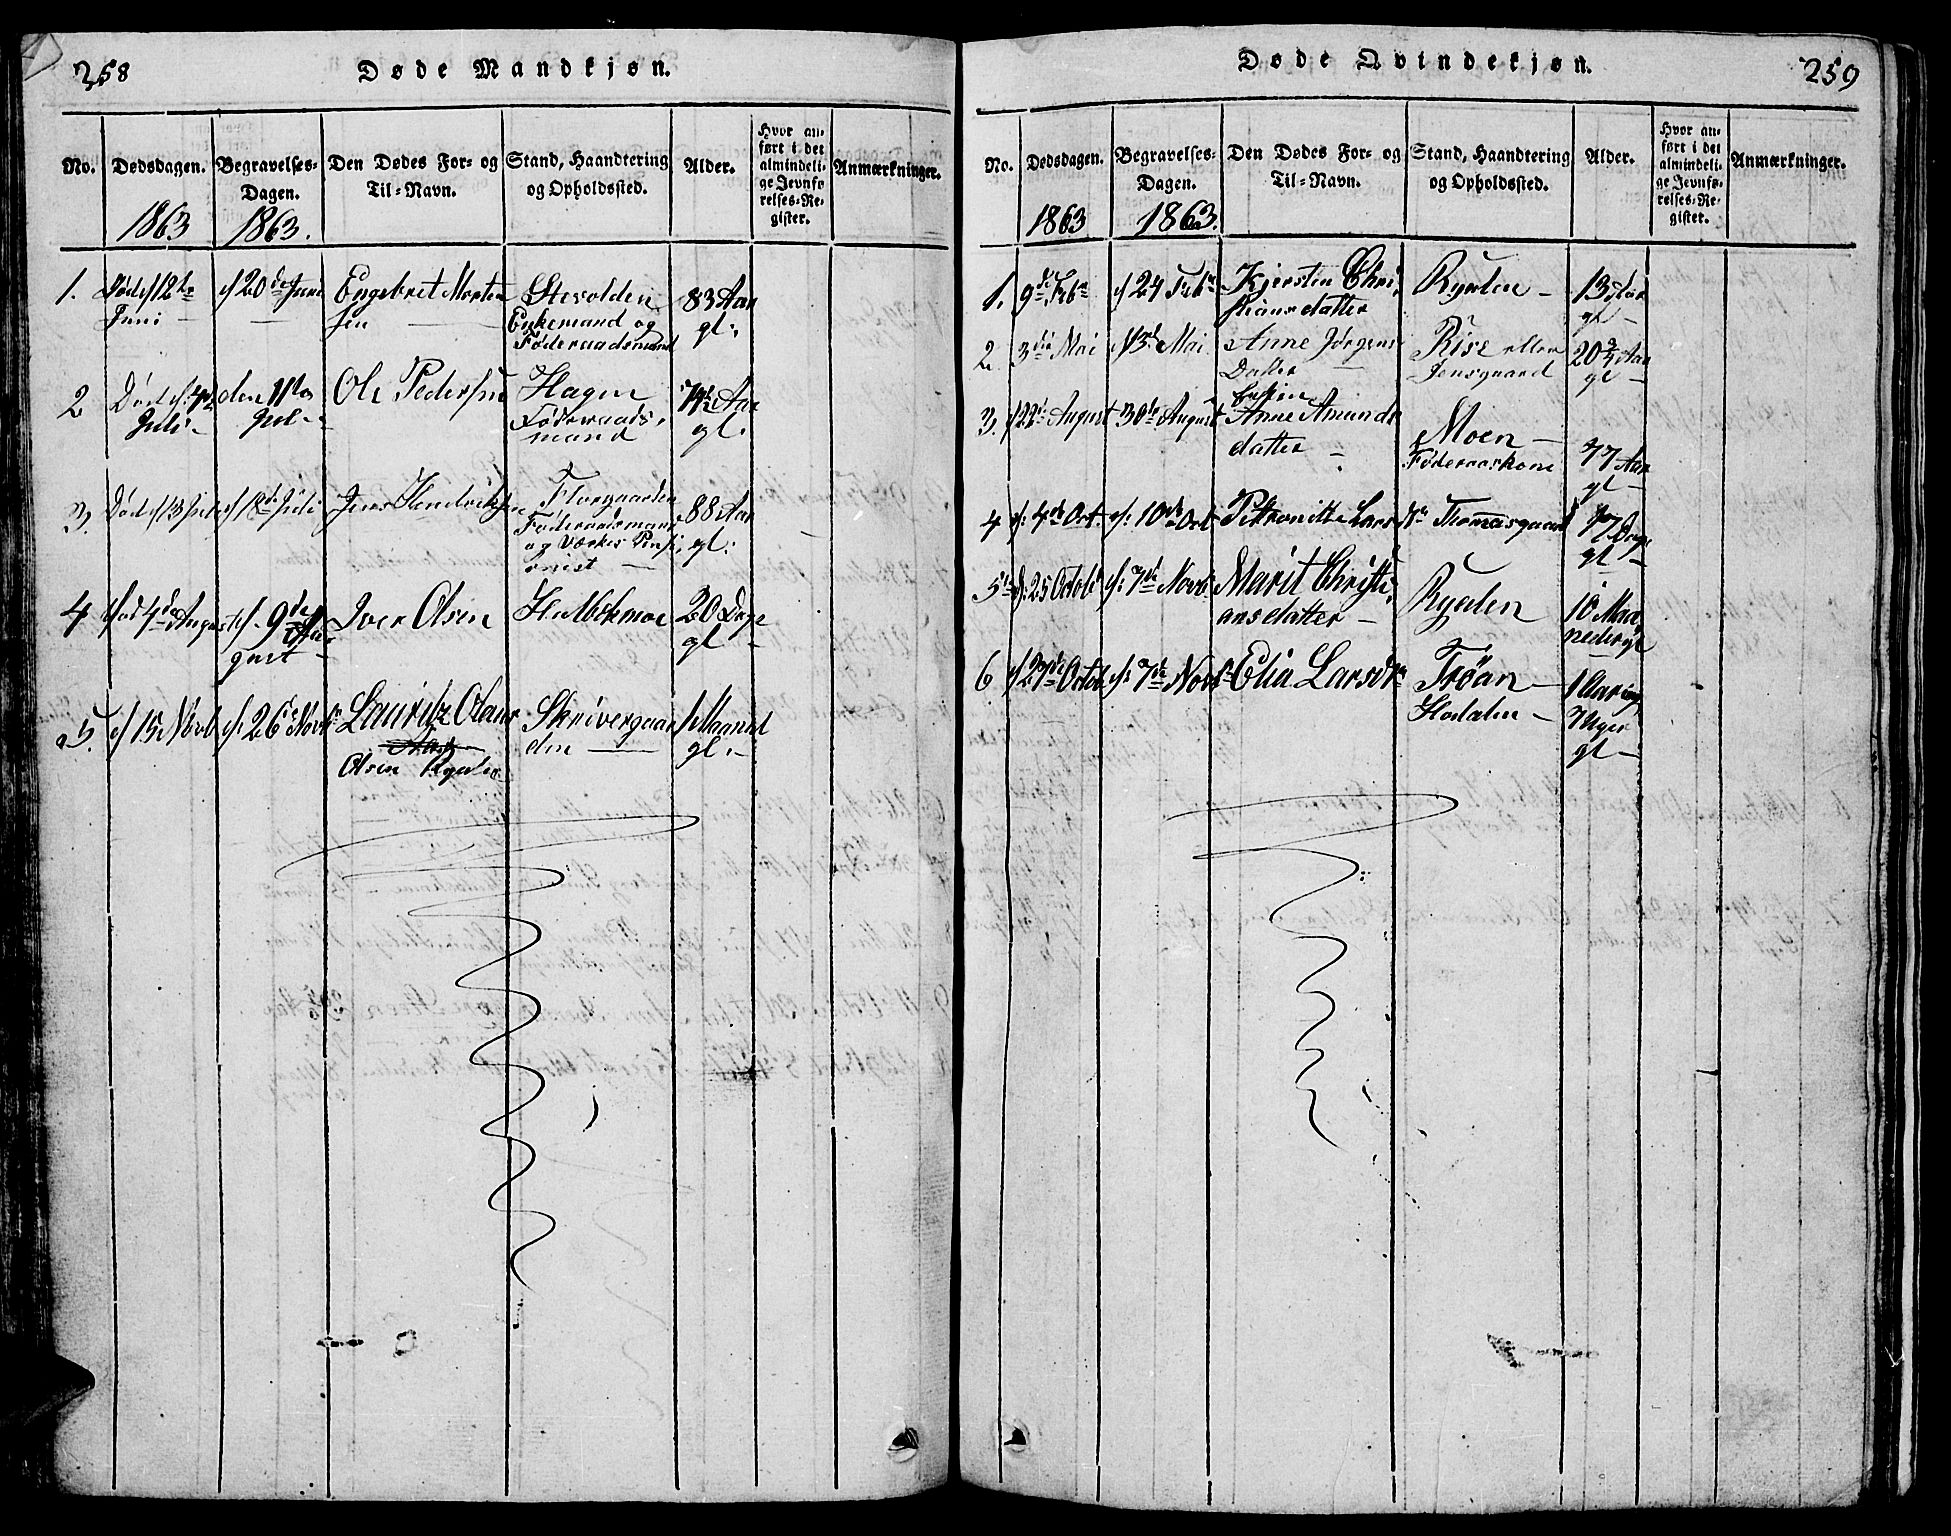 258
Døde Mandkjøn.
No.
Dødsdagen.
1863
Begravelses-
Dagen.
1863.
Den Dødes For- og
Til-Navn.
Stand, Haandtering
og Opholdssted.
Alder.
Hvor an-
ført i det
almindeli-
ge Jevnfø-
relses-Re-
gister.
Anmærkninger.
1.
Død d/12te
Juni
d/20de Juni
Engebret Morten
sen
Enkemand og
Føderaadsmand
83 Aar
gl.
2
Død d/4de
Juli
den 11te
Juli
Ole Pedersen
Hagen
Føderaads-
mand
Aar
gl.
3.
Død d/13 Juli
d/18de Juli
Jens Hendriksen
Føderaadsmand
og Værkes Pensi-
onist
88 Aar
gl.
4
død 4de August
d. 9de Au
gust
Iver Olsen
20 Dage
gl
5.
d/15 Novb
d. 26de Novbr
Lauritz Olaus
Olsen Ryen
Skrivergaar
den
1 Maaned
gl.
Døde Qvindekjøn.
259
No.
Dødsdagen.
1863
Begravelses-
Dagen.
1863.
Den Dødes For- og
Til-Navn.
Stand, Haandtering
og Opholdssted.
Alder.
Hvor an-
ført i det
almindeli-
ge Jevnfø-
relses-Re-
gister.
Anmærkninger.
1.
9de Febr
d 24 Febr
Kjersten Chri-
stiansdatter
Ryen
13
gl
2.
3die Mai
Mai
Anne Jørgens
Datter
Rise eller
Jensgaard
Aar
gl
3.
d/22de August
30te August
Anne Amunds
datter
Moen
Føderaaskone
77 Aar
gl
4
d. 4de Oct.
d. 10de Oct
Petronille Lars Dtr
Thomasgaard
Dage
gl
5te
d. 25 Octobr
d. 7de Novb.
Marit Christi-
ansdatter
Ryen
10 Maa-
neder gl
6
d/27de Octob
d. 7de Novbr
Elia Larsdtr
Trøan
Hodalen
1 Aar og
7 Uger
gl